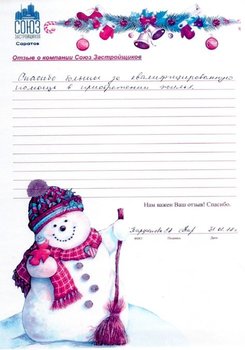 СОЮЗ
ЗАСТРОЙЩИКОВ
Саратов
Отзыв о компании Союз Застройщиков
Спасибо большое за квалифицированную
помощь в приобретении жилья.
Нам важен Ваш отзыв! Спасибо.
ФИО Подпись Дата